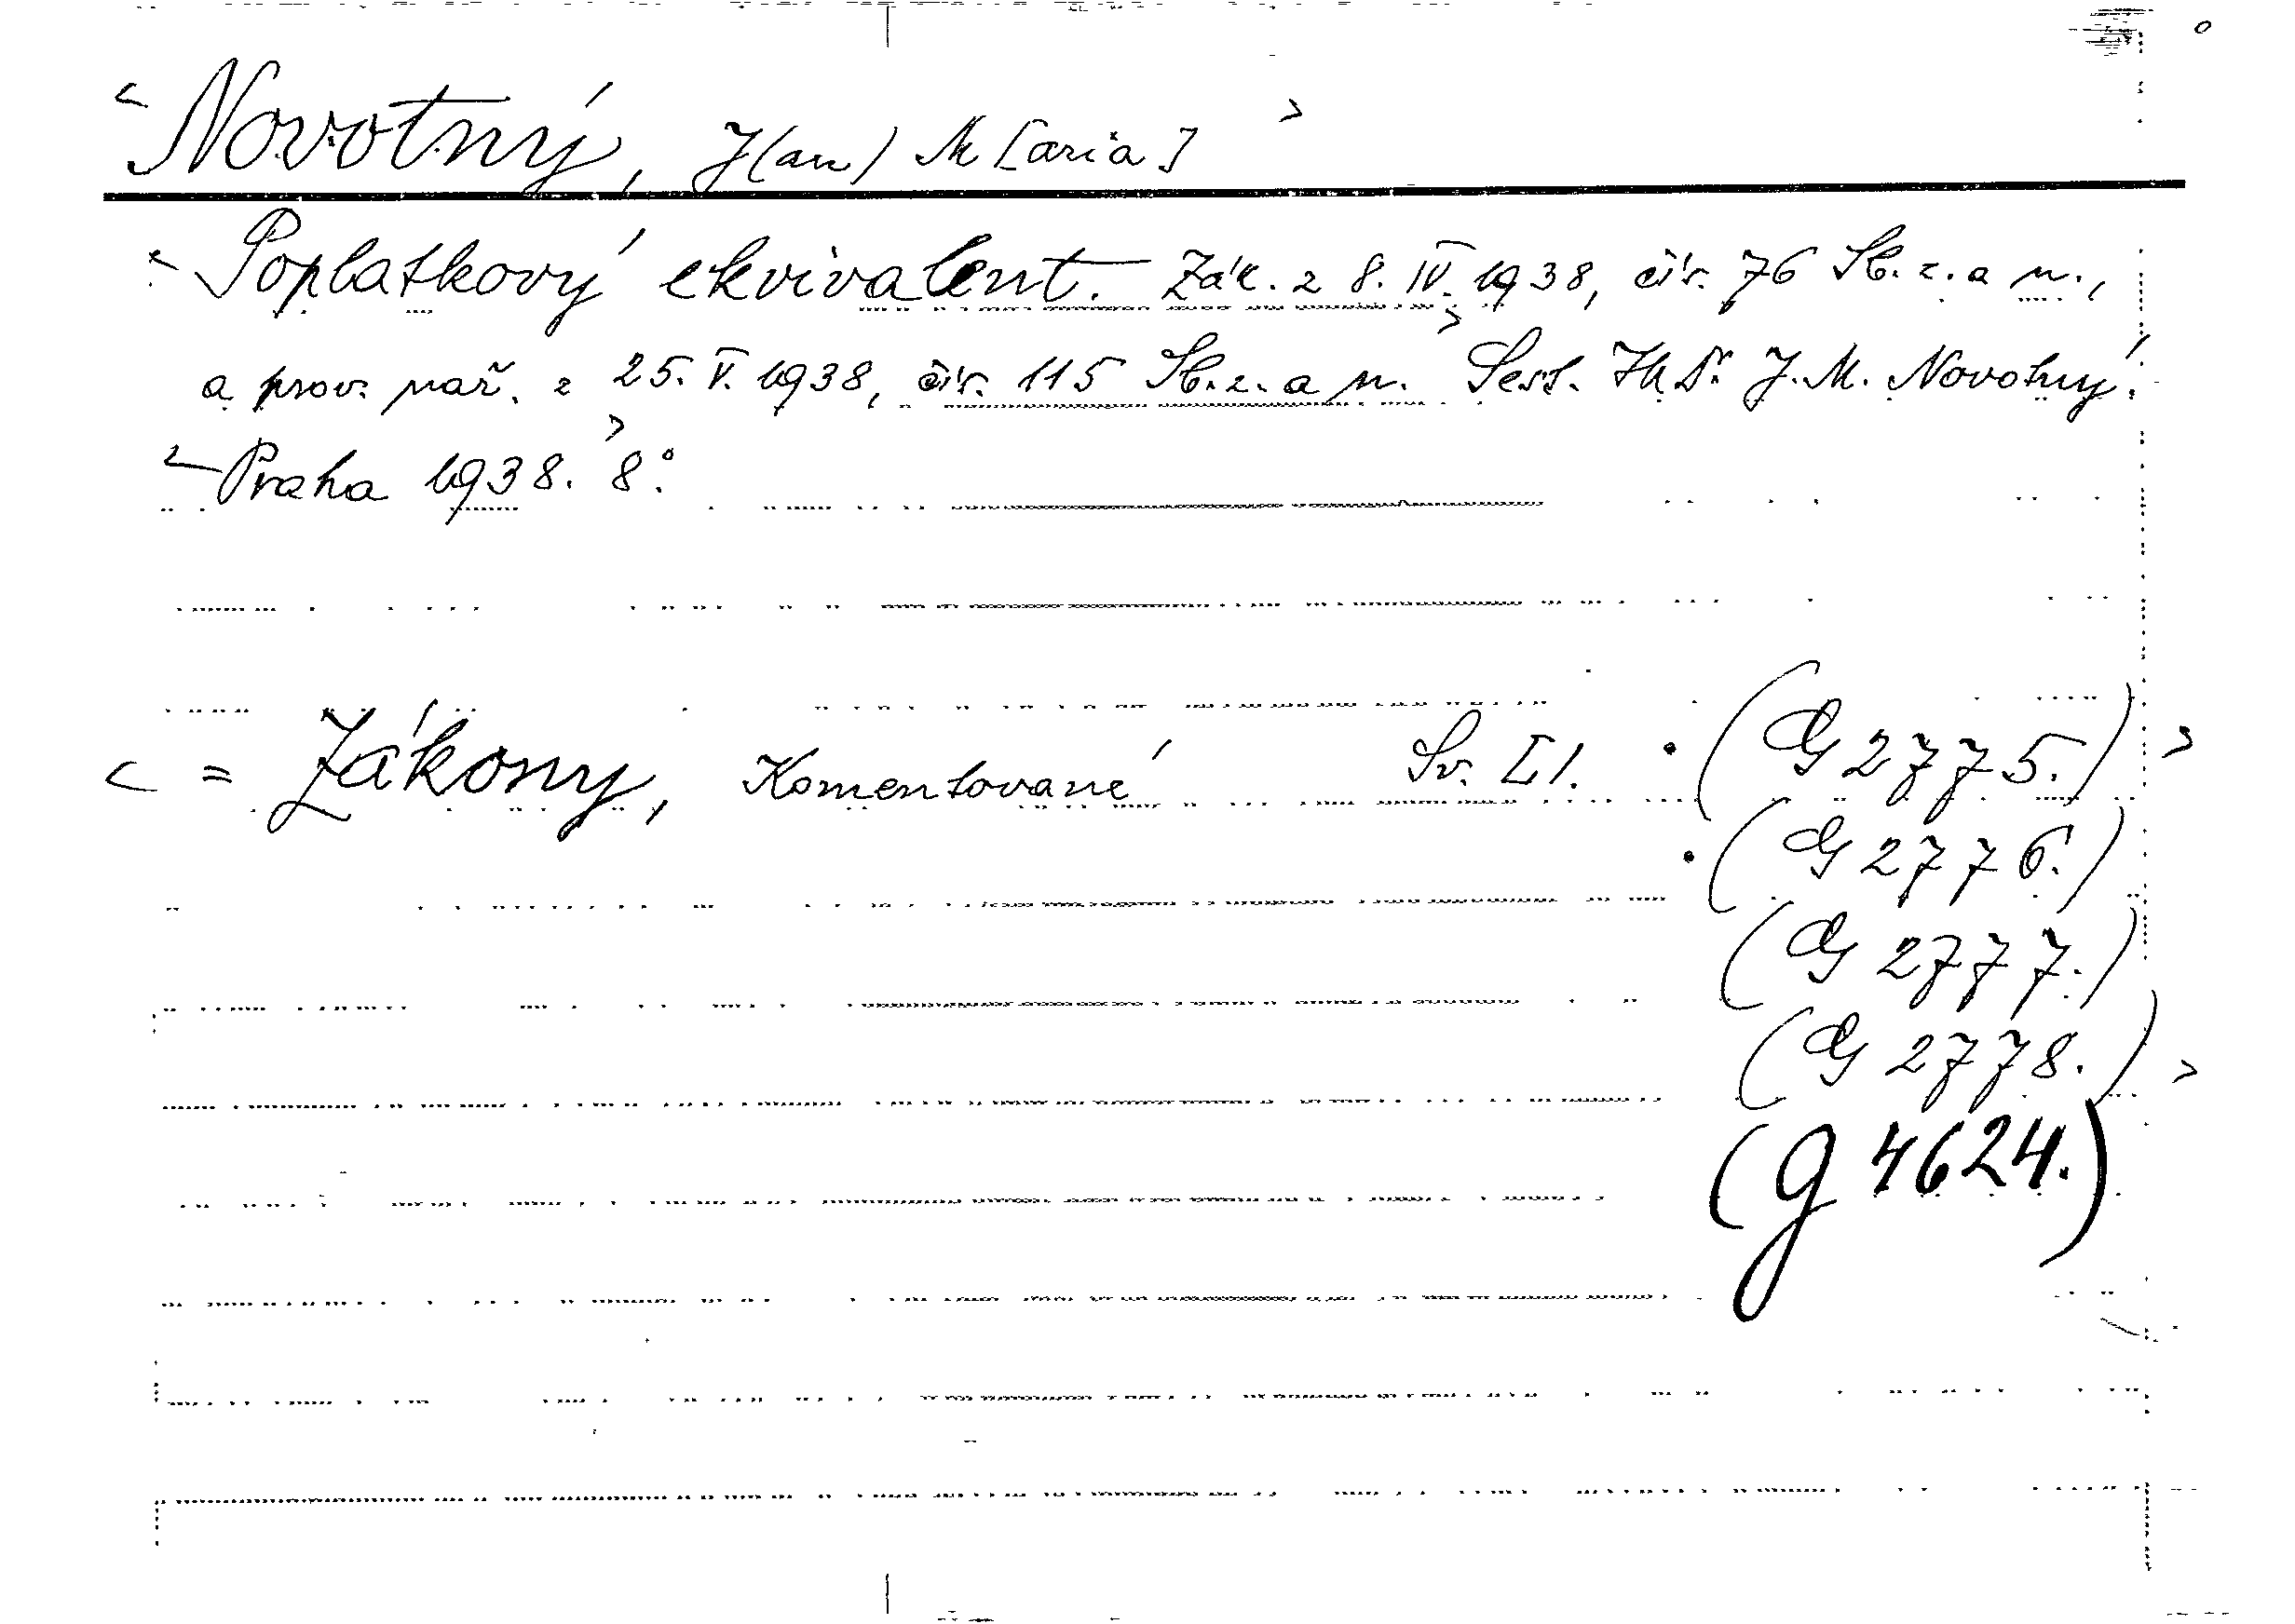 < Novotný, J(an) M[aria] >
< Poplatkový ekvivalent. Zák. z 8. IV. 1938, čís. 76 Sb. z. a n.,
a prov. nař. z 25. V. 1938, čís. 115 Sb. z. a n. > Sest. JUDr J. M. Novotný.
< Praha 1938. > 8°.
< = Zákony, Komentované Sv. LI. • (G 2775.) >
• (G 2776.)
(G 2777.)
(G 2778.) >
(g 4624.)